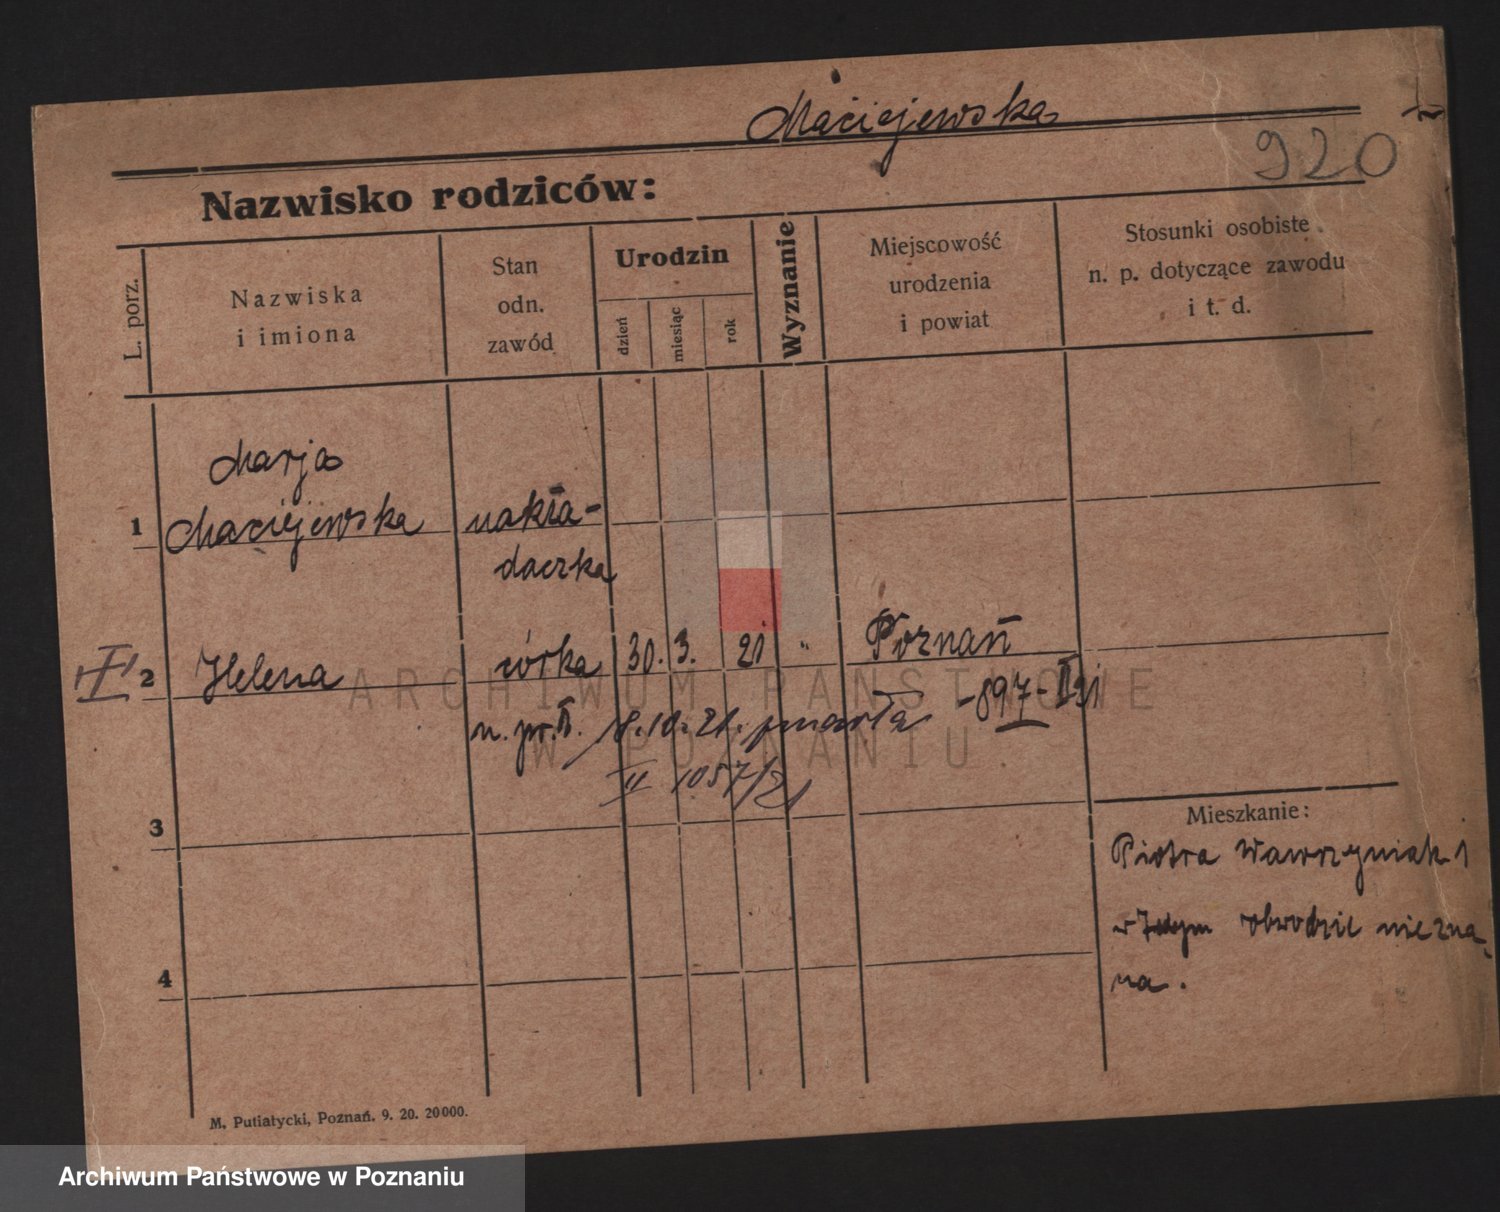 Maciejewska
920
Nazwisko rodziców:
L. porz.
Nazwiska
i imiona
Stan
odn.
zawód
Urodzin
dzień
miesiąc
rok
Wyznanie
Miejscowość
urodzenia
i powiat
Stosunki osobiste
n. p. dotyczące zawodu
i t. d.
Marja
1 Maciejewska nakła-
daczka
II 2 Helena córka 30. 3. 21 " Poznań
n. pr. 8.10.21. umarła -897- II 21
II 1057/21
3
Mieszkanie:
Piotra Wawrzyniak 1
obwodzie niezna
na.
4
M. Putiatycki, Poznań. 9. 20. 20000.
ARCHIWUM PAŃSTWOWE
W POZNANIU
Archiwum Państwowe w Poznaniu